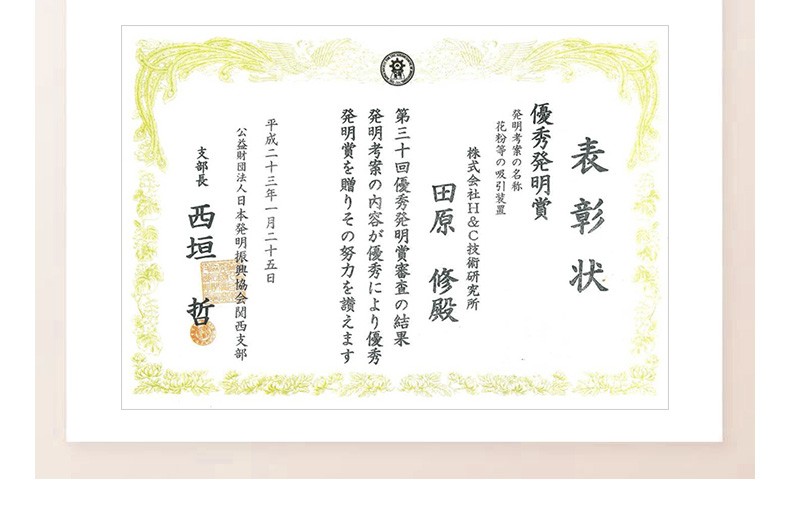 表彰状
優秀発明賞
発明考案の名称
花粉等の吸引装置
株式会社H&C技術研究所
田原 修殿
第三十回優秀発明賞審査の結果
発明考案の内容が優秀により優秀
発明賞を贈りその努力を讃えます
平成二十三年一月二十五日
公益財団法人日本発明振興協会関西支部
支部長 西垣 哲